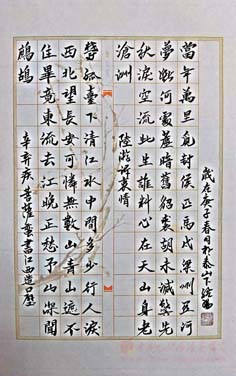 當年萬里覓封侯匹馬戍梁州関河
夢斷何處塵暗舊貂裘胡未滅鬢先
秋淚空流此生誰料心在天山身老
滄洲
陸游訴衷情
鬱孤臺下清江水中間多少行人淚
西北望長安可憐無數山青山遮不
住畢竟東流去江晚正愁予山深聞
鷓鴣
辛弃疾菩薩蠻書江西造口壁
歲在庚子春日於泰山下